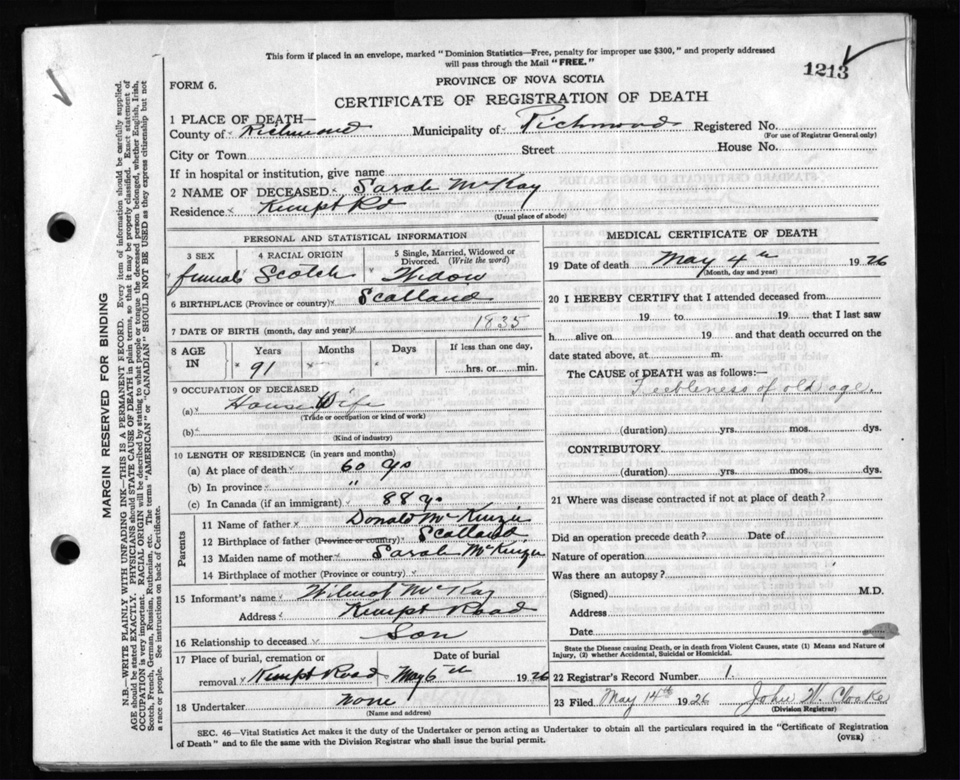 This form if placed in an envelope, marked "Dominion Statistics—Free, penalty for improper use $300," and properly addressed
will pass through the Mail "FREE."
1213
PROVINCE OF NOVA SCOTIA
FORM 6.
CERTIFICATE OF REGISTRATION OF DEATH
1 PLACE OF DEATH—
County of Richmond Municipality of Richmond Registered No.
(For use of Registrar General only)
City or Town Street House No.
If in hospital or institution, give name
2 NAME OF DECEASED Sarah McKay
Residence Kempt Rd
(Usual place of abode)
PERSONAL AND STATISTICAL INFORMATION
3 SEX 4 RACIAL ORIGIN 5 Single, Married, Widowed or Divorced. (Write the word)
female Scotch Widow
6 BIRTHPLACE (Province or country) Scotland
7 DATE OF BIRTH (month, day and year) 1835
8 AGE IN Years Months Days If less than one day,
91 hrs. or min.
9 OCCUPATION OF DECEASED
(a) House Wife
(Trade or occupation or kind of work)
(b)
(Kind of industry)
10 LENGTH OF RESIDENCE (in years and months)
(a) At place of death 60 ys
(b) In province "
(c) In Canada (if an immigrant) 88 ys
Parents
11 Name of father Donald McKinzie
12 Birthplace of father (Province or country) Scotland
13 Maiden name of mother Sarah McKinzie
14 Birthplace of mother (Province or country)
15 Informant's name Wilmot McKay
Address Kempt Road
16 Relationship to deceased Son
17 Place of burial, cremation or removal Date of burial
Kempt Road May 6th 1926
18 Undertaker None
(Name and address)
MEDICAL CERTIFICATE OF DEATH
19 Date of death May 4th 1926
(Month, day and year)
20 I HEREBY CERTIFY that I attended deceased from
19 to 19 that I last saw
h alive on 19 and that death occurred on the
date stated above, at m.
The CAUSE of DEATH was as follows:—
Feebleness of old age.
(duration) yrs. mos. dys.
CONTRIBUTORY.
(duration) yrs. mos. dys.
21 Where was disease contracted if not at place of death?
Did an operation precede death? Date of
Nature of operation
Was there an autopsy?
(Signed) M.D.
Address
Date
State the Disease causing Death, or in death from Violent Causes, state (1) Means and Nature of
Injury, (2) whether Accidental, Suicidal or Homicidal.
22 Registrar's Record Number 1.
23 Filed May 14th 1926 John W. Cloake
(Division Registrar)
SEC. 46—Vital Statistics Act makes it the duty of the Undertaker or person acting as Undertaker to obtain all the particulars required in the "Certificate of Registration
of Death" and to file the same with the Division Registrar who shall issue the burial permit.
(OVER)
MARGIN RESERVED FOR BINDING
N.B.—WRITE PLAINLY WITH UNFADING INK—THIS IS A PERMANENT RECORD. Every item of information should be carefully supplied.
AGE should be stated EXACTLY. PHYSICIANS should STATE CAUSE OF DEATH in plain terms, so that it may be properly classified. Exact statement of
OCCUPATION is very important. RACIAL ORIGIN will be described by stating to what people or tongue the deceased person belonged, whether English, Irish,
Scotch, French, German, Russian, Ruthenian, etc. The terms "AMERICAN" or "CANADIAN" SHOULD NOT BE USED as they express citizenship but not
a race or people. See instructions on back of Certificate.